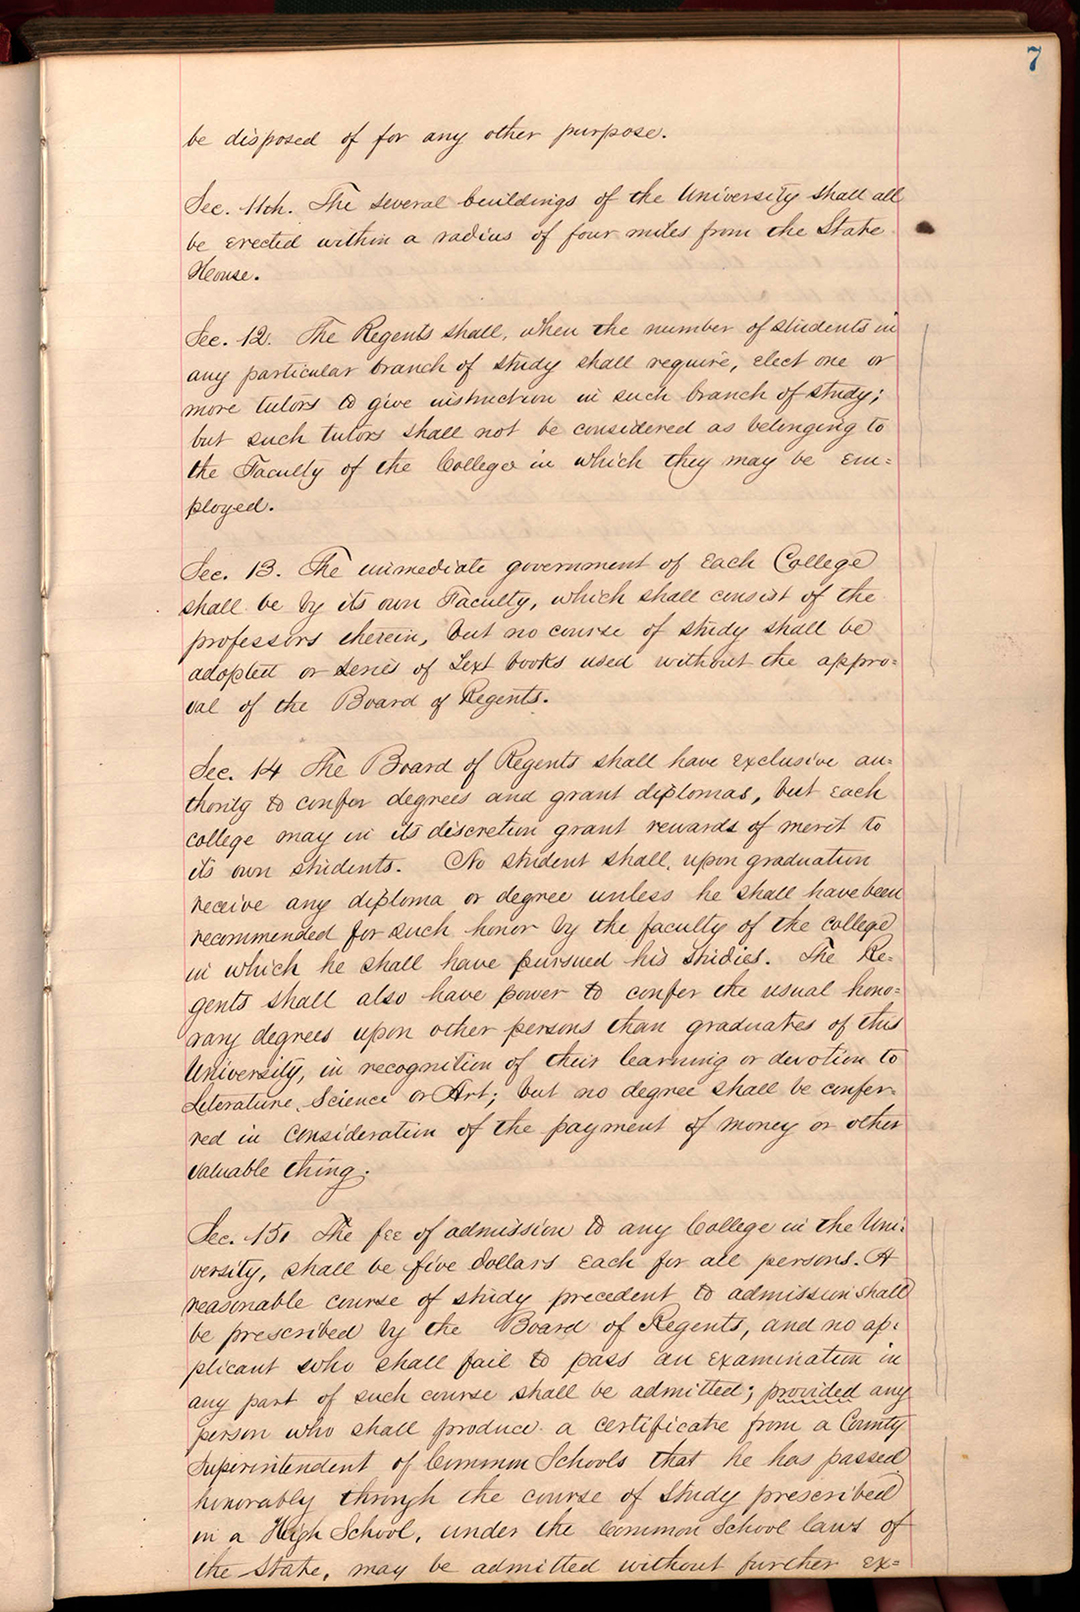 7
be disposed of for any other purpose.
Sec. 11th. The several buildings of the University shall all
be erected within a radius of four miles from the State
House.
Sec. 12. The Regents shall, when the number of students in
any particular branch of study shall require, elect one or
more tutors to give instruction in such branch of study;
but such tutors shall not be considered as belonging to
the Faculty of the College in which they may be em=
ployed.
Sec. 13. The immediate government of each College
shall be by its own Faculty, which shall consist of the
professors therein, but no course of study shall be
adopted or series of Text books used without the appro=
val of the Board of Regents.
Sec. 14 The Board of Regents shall have exclusive au=
thority to confer degrees and grant diplomas, but each
college may in its discretion grant rewards of merit to
its own students. No student shall, upon graduation
receive any diploma or degree unless he shall have been
recommended for such honor by the faculty of the college
in which he shall have pursued his studies. The Re=
gents shall also have power to confer the usual hono=
rary degrees upon other persons than graduates of this
University, in recognition of their learning or devotion to
Literature, Science or Art; but no degree shall be confer=
red in consideration of the payment of money or other
valuable thing.
Sec. 15. The fee of admission to any College in the Uni=
versity, shall be five dollars each for all persons. A
reasonable course of study precedent to admission shall
be prescribed by the Board of Regents, and no ap=
plicant who shall fail to pass an examination in
any part of such course shall be admitted; provided any
person who shall produce a certificate from a County
Superintendent of Common Schools that he has passed
honorably through the course of study prescribed
in a High School, under the Common School laws of
the State, may be admitted without further ex=